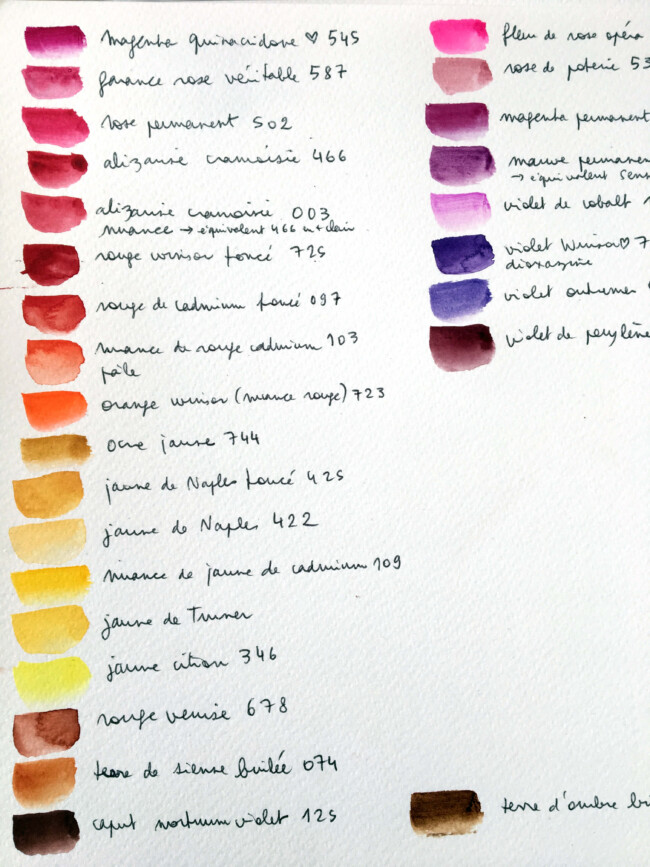 magenta quinacidone ♡ 545
garance rose véritable 587
rose permanent 502
alizarine cramoisie 466
alizarine cramoisie 003
nuance → équivalent 466 en + clair
rouge winsor foncé 725
rouge de cadmium foncé 097
nuance de rouge cadmium 103
pâle
orange winsor (nuance rouge) 723
ocre jaune 744
jaune de Naples foncé 425
jaune de Naples 422
nuance de jaune de cadmium 109
jaune de Turner
jaune citron 346
rouge venise 678
terre de sienne brûlée 074
caput mortuum violet 125
fleur de rose opéra
rose de poterie 53
magenta permanent
mauve permanen
→ équivalent senn
violet de cobalt
violet Winsor ♡ 7
dioxazine
violet outremer
violet de perylène
terre d'ombre br